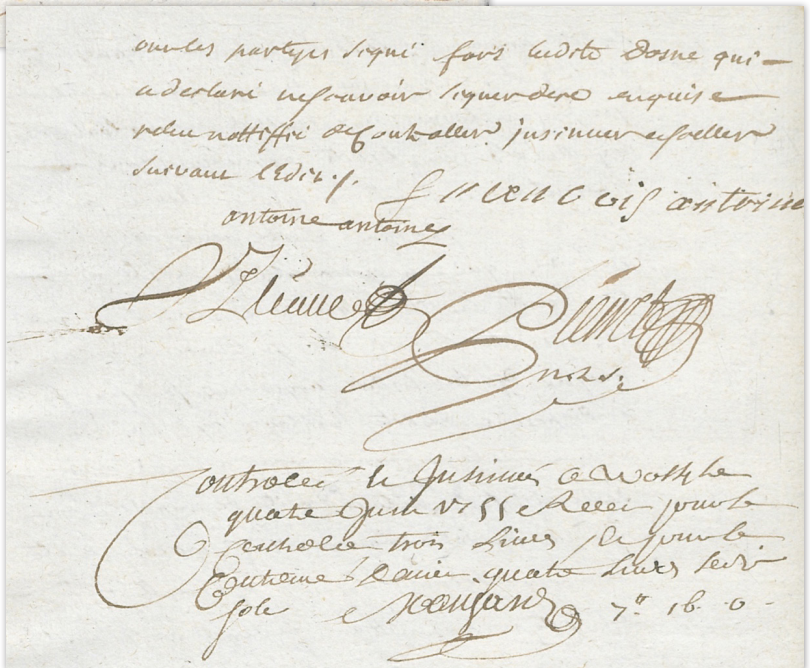 ont les partyes signé fors ladite Dosne qui
a declaré ne scavoir signer de ce enquise
relu nottiffié de Controller, insinuer et sceller
suivant l'Edit ./.
francois antoine
antoine antoine
Pierret
notre
Controllé et Insinué a
quatre Juin 1755 et Receu pour le
Controlle trois Livres et pour le
Centieme Denier quatre Livres seize
sols 7tt 16 0